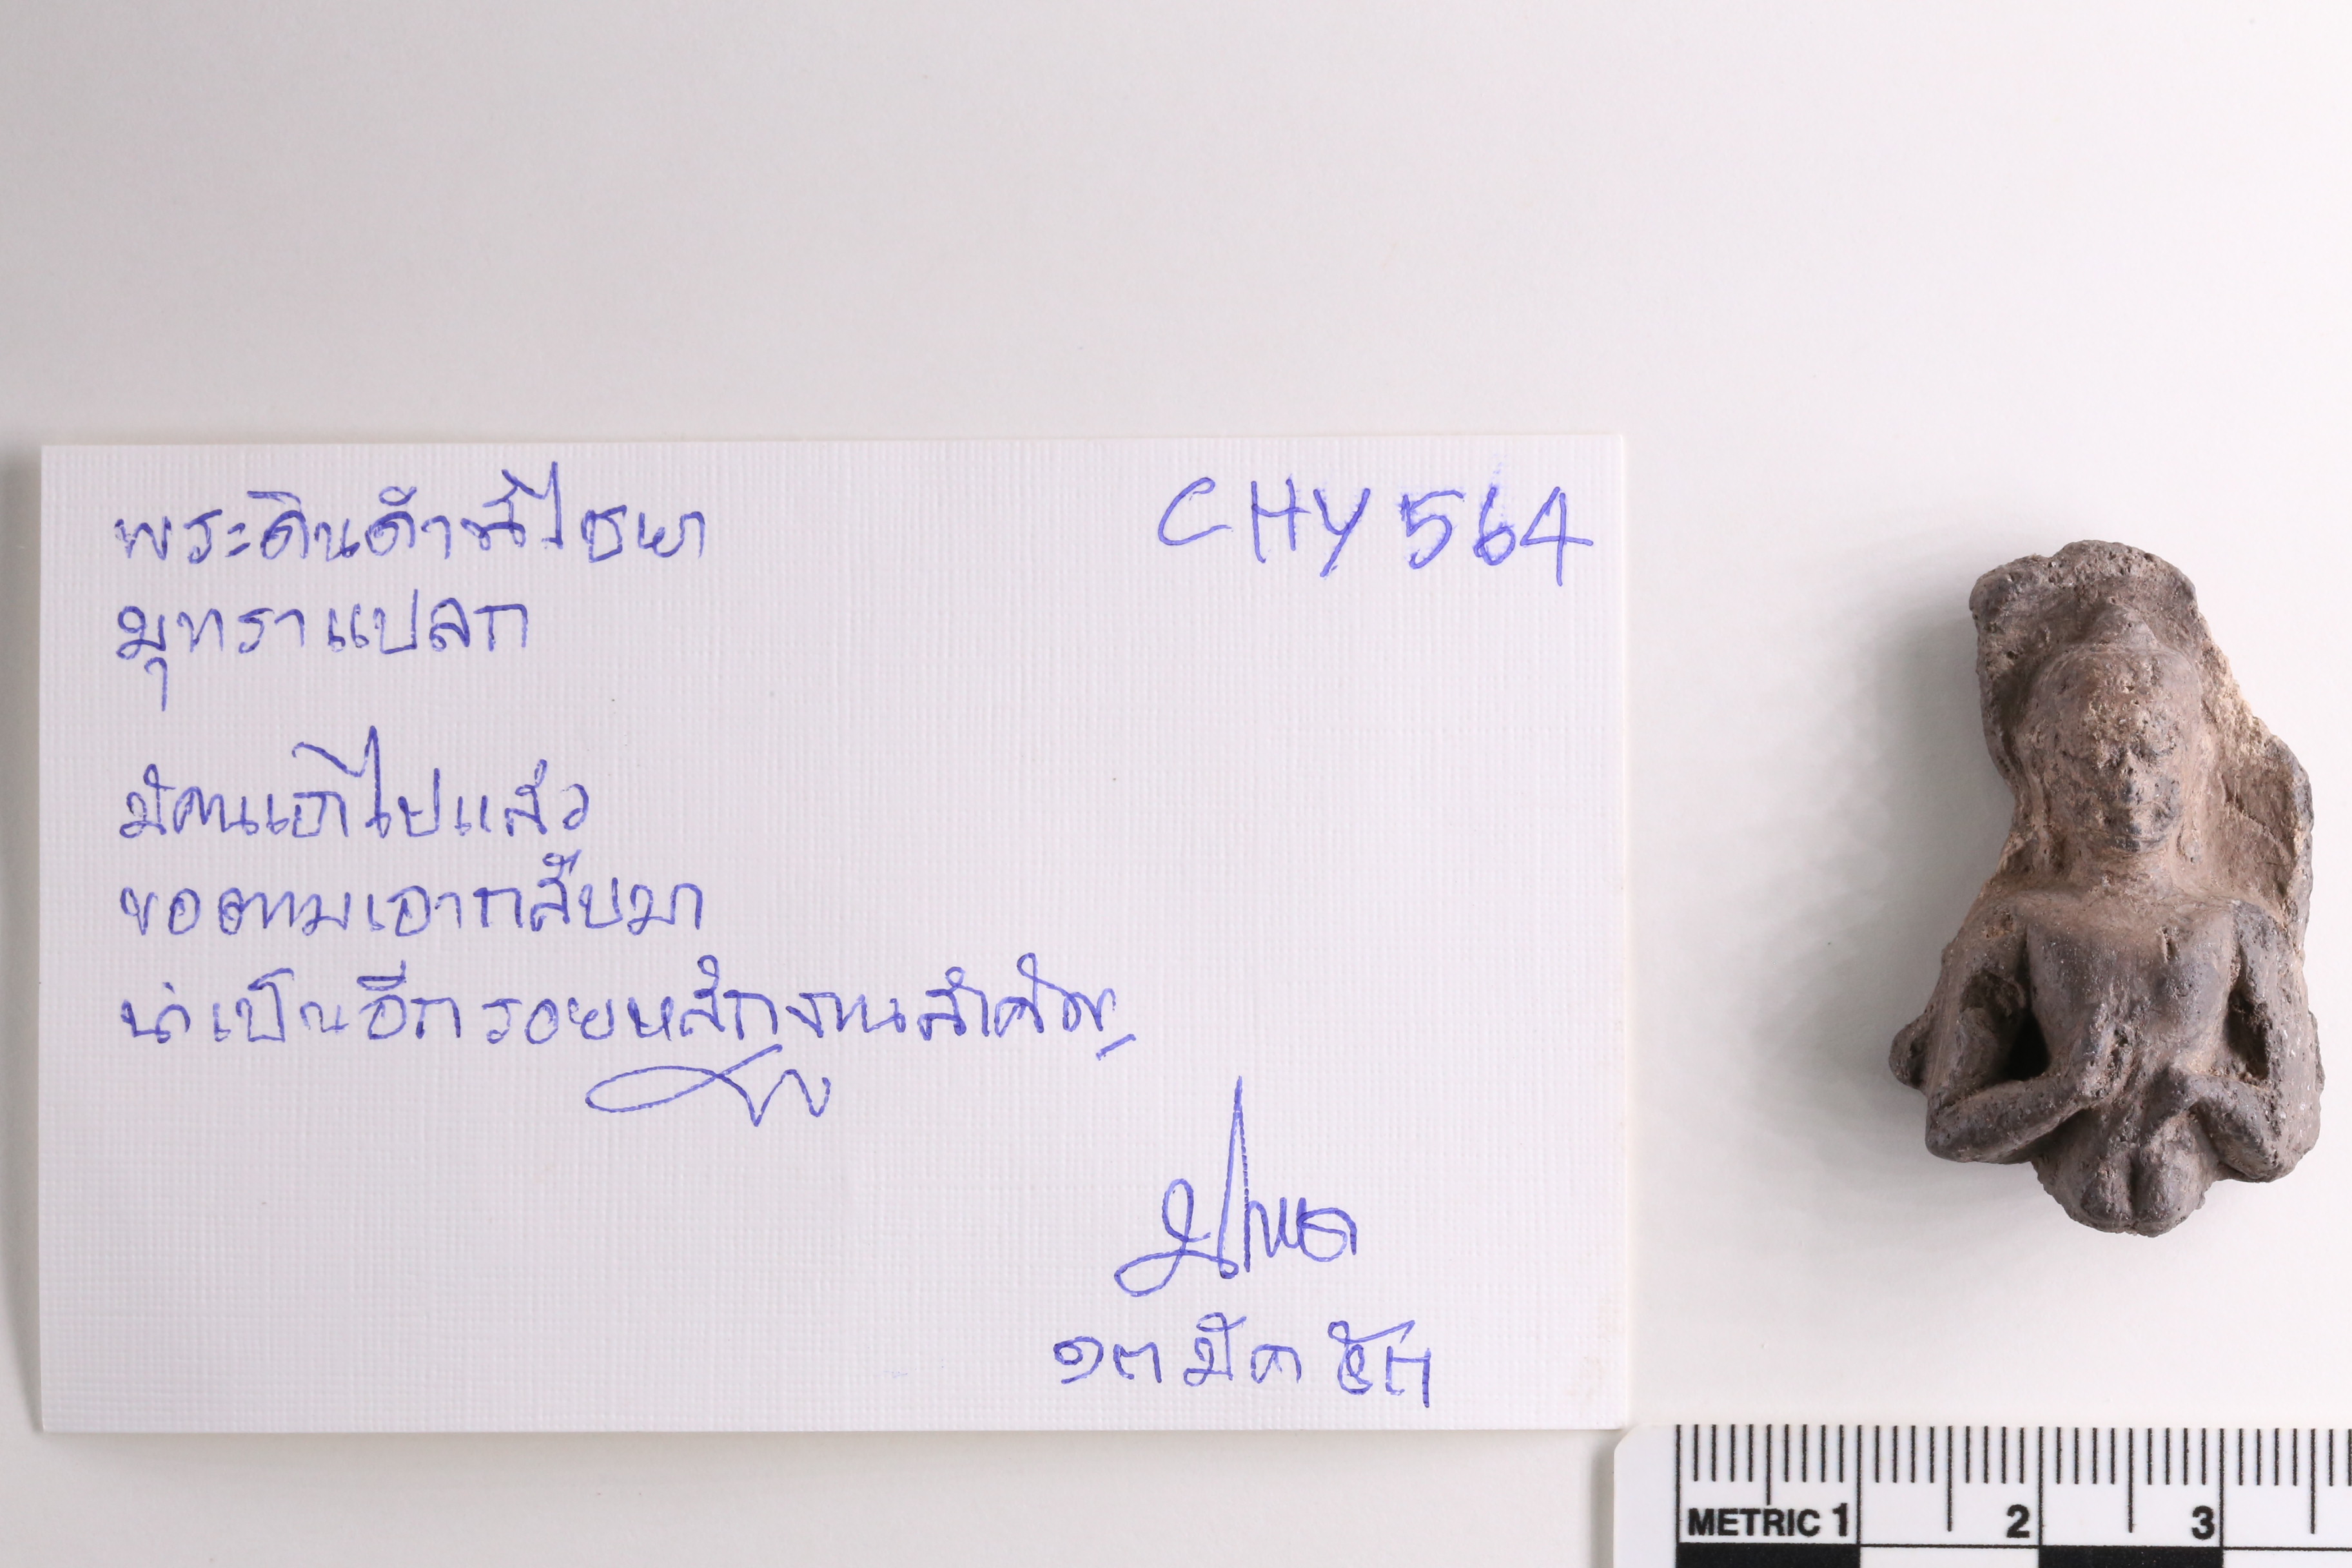 พระดินดำพิไชยา
CHY 564
มุทราแปลก
มีคนเอาไปแล้ว
ขอตามเอากลับมา
น่าเป็นอีกรอยหลักฐานสำคัญ
๑๓ มีค ๕๓
METRIC 1 2 3